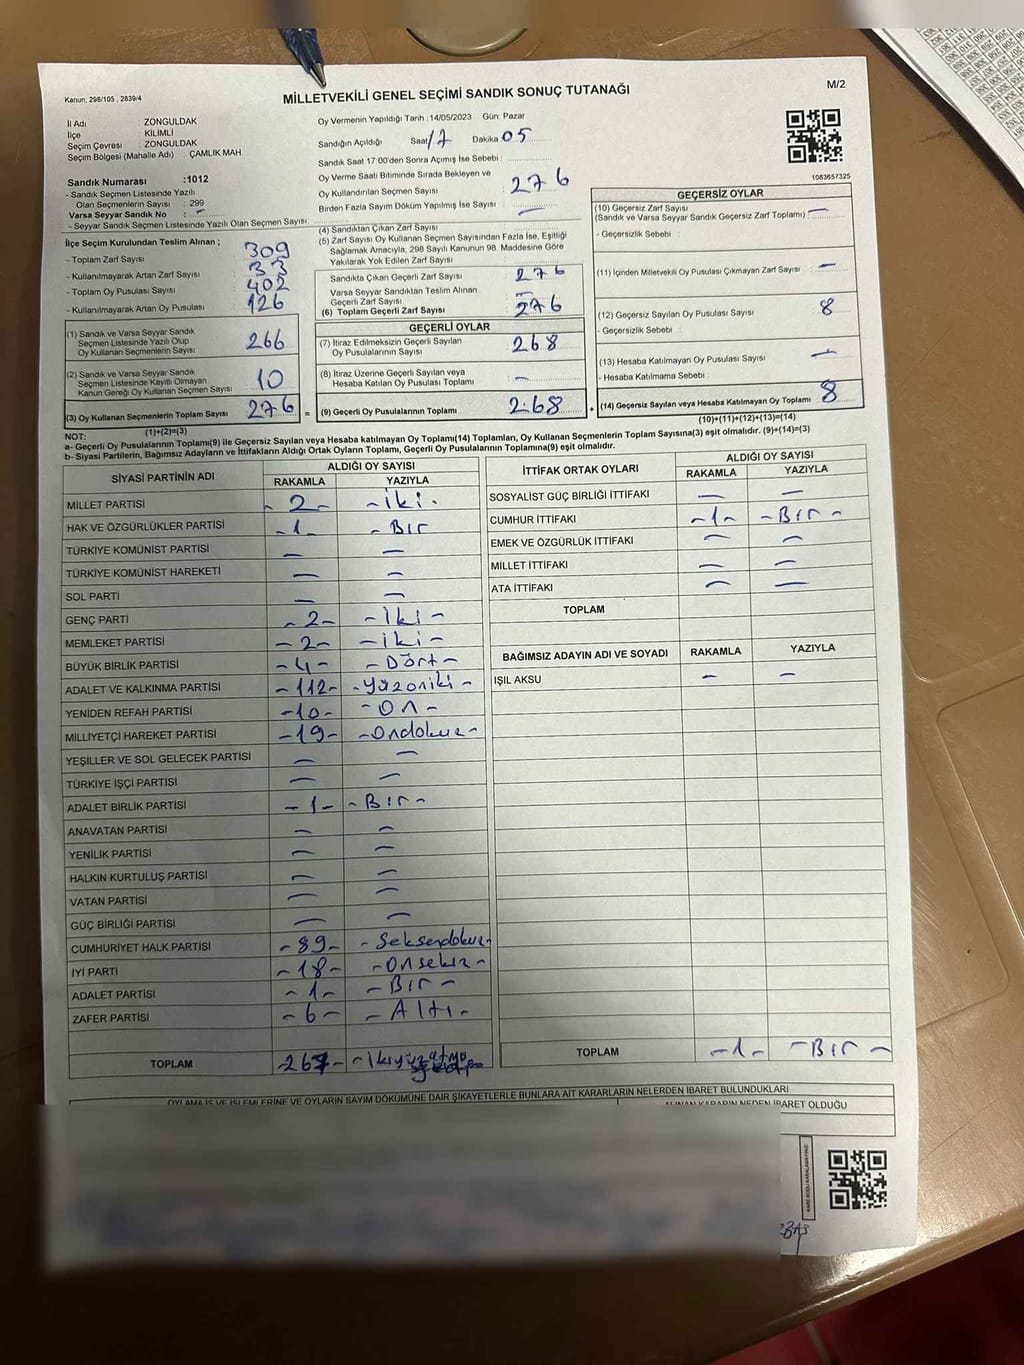 Kanun; 298/105 , 2839/4
MİLLETVEKİLİ GENEL SEÇİMİ SANDIK SONUÇ TUTANAĞI
M/2
İl Adı : ZONGULDAK
İlçe : KİLİMLİ
Seçim Çevresi : ZONGULDAK
Seçim Bölgesi (Mahalle Adı) : ÇAMLIK MAH
Oy Vermenin Yapıldığı Tarih : 14/05/2023 Gün: Pazar
Sandığın Açıldığı Saat 17 Dakika 05
Sandık Saat 17:00'den Sonra Açımış İse Sebebi :
Oy Verme Saati Bitiminde Sırada Bekleyen ve
Oy Kullandırılan Seçmen Sayısı 276
Birden Fazla Sayım Döküm Yapılmış İse Sayısı : —
1083657325
Sandık Numarası :1012
- Sandık Seçmen Listesinde Yazılı
Olan Seçmenlerin Sayısı : 299
Varsa Seyyar Sandık No : –
- Seyyar Sandık Seçmen Listesinde Yazılı Olan Seçmen Sayısı:
İlçe Seçim Kurulundan Teslim Alınan ;
- Toplam Zarf Sayısı 309
- Kullanılmayarak Artan Zarf Sayısı : 33
- Toplam Oy Pusulası Sayısı : 402
- Kullanılmayarak Artan Oy Pusulası 126
(1) Sandık ve Varsa Seyyar Sandık
Seçmen Listesinde Yazılı Olup
Oy Kullanan Seçmenlerin Sayısı 266
(2) Sandık ve Varsa Seyyar Sandık
Seçmen Listesinde Kayıtlı Olmayan
Kanun Gereği Oy Kullanan Seçmen Sayısı 10
(3) Oy Kullanan Seçmenlerin Toplam Sayısı 276 =
(1)+(2)=(3)
(4) Sandıktan Çıkan Zarf Sayısı
(5) Zarf Sayısı Oy Kullanan Seçmen Sayısından Fazla İse, Eşitliği
Sağlamak Amacıyla, 298 Sayılı Kanunun 98. Maddesine Göre
Yakılarak Yok Edilen Zarf Sayısı
Sandıkta Çıkan Geçerli Zarf Sayısı 276
Varsa Seyyar Sandıktan Teslim Alınan
Geçerli Zarf Sayısı —
(6) Toplam Geçerli Zarf Sayısı 276
GEÇERLİ OYLAR
(7) İtiraz Edilmeksizin Geçerli Sayılan
Oy Pusulalarının Sayısı 268
(8) İtiraz Üzerine Geçerli Sayılan veya
Hesaba Katılan Oy Pusulası Toplamı –
(9) Geçerli Oy Pusulalarının Toplamı 268 +
GEÇERSİZ OYLAR
(10) Geçersiz Zarf Sayısı
(Sandık ve Varsa Seyyar Sandık Geçersiz Zarf Toplamı) —
- Geçersizlik Sebebi :
(11) İçinden Milletvekili Oy Pusulası Çıkmayan Zarf Sayısı : —
(12) Geçersiz Sayılan Oy Pusulası Sayısı : 8
- Geçersizlik Sebebi
(13) Hesaba Katılmayan Oy Pusulası Sayısı —
- Hesaba Katılmama Sebebi :
(14) Geçersiz Sayılan veya Hesaba Katılmayan Oy Toplamı : 8
(10)+(11)+(12)+(13)=(14)
NOT:
a- Geçerli Oy Pusulalarının Toplamı(9) ile Geçersiz Sayılan veya Hesaba katılmayan Oy Toplamı(14) Toplamları, Oy Kullanan Seçmenlerin Toplam Sayısına(3) eşit olmalıdır. (9)+(14)=(3)
b- Siyasi Partilerin, Bağımsız Adayların ve İttifakların Aldığı Ortak Oyların Toplamı, Geçerli Oy Pusulalarının Toplamına(9) eşit olmalıdır.
SİYASİ PARTİNİN ADI ALDIĞI OY SAYISI
RAKAMLA YAZIYLA
MİLLET PARTİSİ - 2 - - iki -
HAK VE ÖZGÜRLÜKLER PARTİSİ - 1 - - Bır
TÜRKİYE KOMÜNİST PARTİSİ — —
TÜRKİYE KOMÜNİST HAREKETİ — —
SOL PARTİ — —
GENÇ PARTİ - 2 - - iki -
MEMLEKET PARTİSİ - 2 - - iki -
BÜYÜK BİRLİK PARTİSİ - 4 - - Dört -
ADALET VE KALKINMA PARTİSİ - 112 - - Yüzoniki -
YENİDEN REFAH PARTİSİ - 10 - - On -
MİLLİYETÇİ HAREKET PARTİSİ - 19 - - Ondokuz -
YEŞİLLER VE SOL GELECEK PARTİSİ — —
TÜRKİYE İŞÇİ PARTİSİ — —
ADALET BİRLİK PARTİSİ - 1 - - Bır -
ANAVATAN PARTİSİ — —
YENİLİK PARTİSİ — —
HALKIN KURTULUŞ PARTİSİ — —
VATAN PARTİSİ — —
GÜÇ BİRLİĞİ PARTİSİ — —
CUMHURİYET HALK PARTİSİ - 89 - - Seksendokuz -
İYİ PARTİ - 18 - - Onsekız -
ADALET PARTİSİ - 1 - - Bır -
ZAFER PARTİSİ - 6 - - Altı -
TOPLAM - 267 - - ikıyüzatmış
İTTİFAK ORTAK OYLARI ALDIĞI OY SAYISI
RAKAMLA YAZIYLA
SOSYALİST GÜÇ BİRLİĞİ İTTİFAKI — —
CUMHUR İTTİFAKI - 1 - - Bır -
EMEK VE ÖZGÜRLÜK İTTİFAKI — —
MİLLET İTTİFAKI — —
ATA İTTİFAKI — —
TOPLAM
BAĞIMSIZ ADAYIN ADI VE SOYADI RAKAMLA YAZIYLA
IŞIL AKSU — —
TOPLAM - 1 - - Bır -
OYLAMA İŞ VE İŞLEMLERİNE VE OYLARIN SAYIM DÖKÜMÜNE DAİR ŞİKAYETLERLE BUNLARA AİT KARARLARIN NELERDEN İBARET BULUNDUKLARI
ALINAN KARARIN NEDEN İBARET OLDUĞU